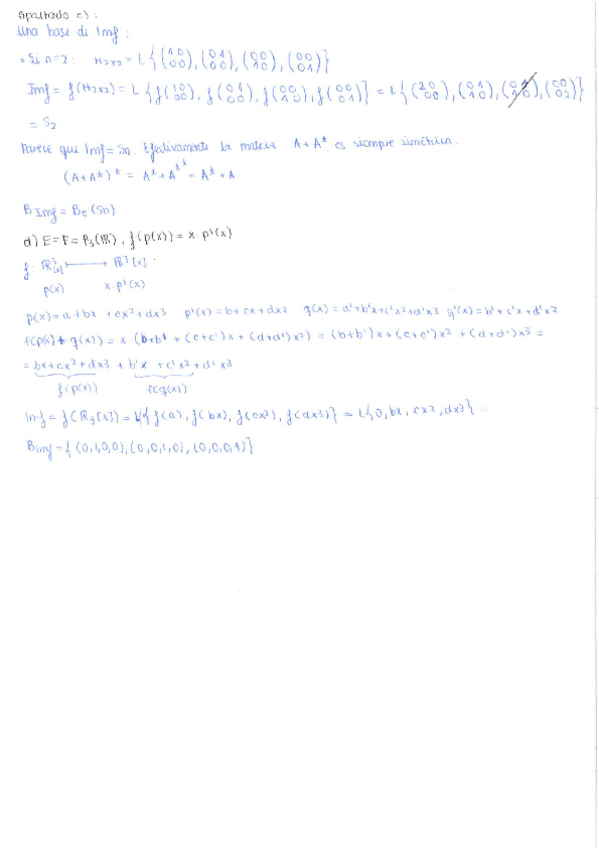 Apartado c):
Una base de Imf:
• Si n=2: M2x2 = L{(1 0 / 0 0), (0 1 / 0 0), (0 0 / 1 0), (0 0 / 0 1)}
Imf = f(M2x2) = L{f(1 0 / 0 0), f(0 1 / 0 0), f(0 0 / 1 0), f(0 0 / 0 1)} = L{(2 0 / 0 0), (0 1 / 1 0), (0 1 / 1 0), (0 0 / 0 2)}
= S2
Parece que Imf = Sn. Efectivamente la matriz A+Aᵗ es siempre simétrica.
(A+Aᵗ)ᵗ = Aᵗ + Aᵗᵗ = Aᵗ + A
B Imf = Bc (Sn)
d) E=F=P3(ℝ), f(p(x)) = x·p'(x)
f: ℝ3[x] ⟼ ℝ3[x].
p(x) x·p'(x)
p(x) = a+bx+cx²+dx3 p'(x) = b+cx+dx2 q(x) = a'+b'x+c'x²+d'x3 q'(x) = b'+c'x+d'x2
f(p(x)+q(x)) = x·(b+b'+(c+c')x+(d+d')x2) = (b+b')x+(c+c')x2+(d+d')x3 =
= bx+cx²+dx3 + b'x+c'x2+d'x3
f(p(x)) f(q(x))
Imf = f(ℝ3[x]) = L{f(a), f(bx), f(cx²), f(dx3)} = L{0, bx, cx², dx3}
Bimf = {(0,1,0,0), (0,0,1,0), (0,0,0,1)}